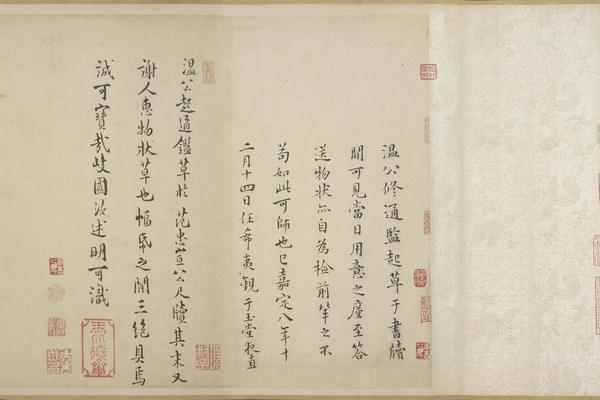 温公修通監起草于書牘
間可見當日用意之廑至答
送物狀亦自為檢前輩之不
苟如此可師也已嘉定八年十
二月十四日任希夷觀于玉堂夜直
温公起通鑑草於范忠宣公尺牘其末又
謝人惠物狀草也幅帋之間三絕具焉
誠可寶哉岐國汝述明可識